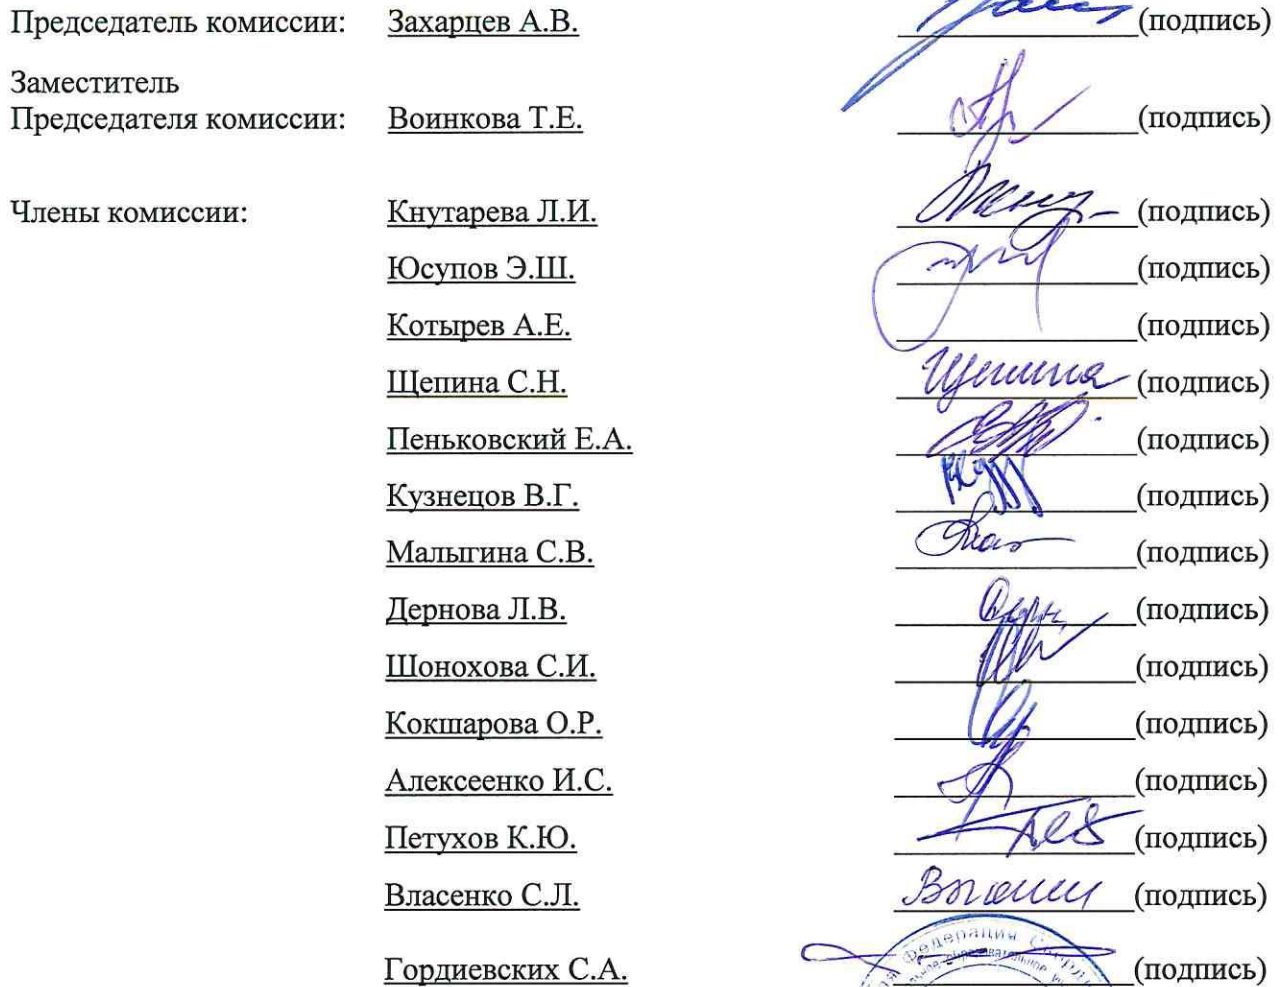 Председатель комиссии: Захарцев А.В. (подпись)
Заместитель
Председателя комиссии: Воинкова Т.Е. (подпись)
Члены комиссии: Кнутарева Л.И. (подпись)
Юсупов Э.Ш. (подпись)
Котырев А.Е. (подпись)
Щепина С.Н. Щепина (подпись)
Пеньковский Е.А. (подпись)
Кузнецов В.Г. (подпись)
Малыгина С.В. (подпись)
Дернова Л.В. (подпись)
Шонохова С.И. (подпись)
Кокшарова О.Р. (подпись)
Алексеенко И.С. (подпись)
Петухов К.Ю. (подпись)
Власенко С.Л. (подпись)
Федерация
Гордиевских С.А. (подпись)